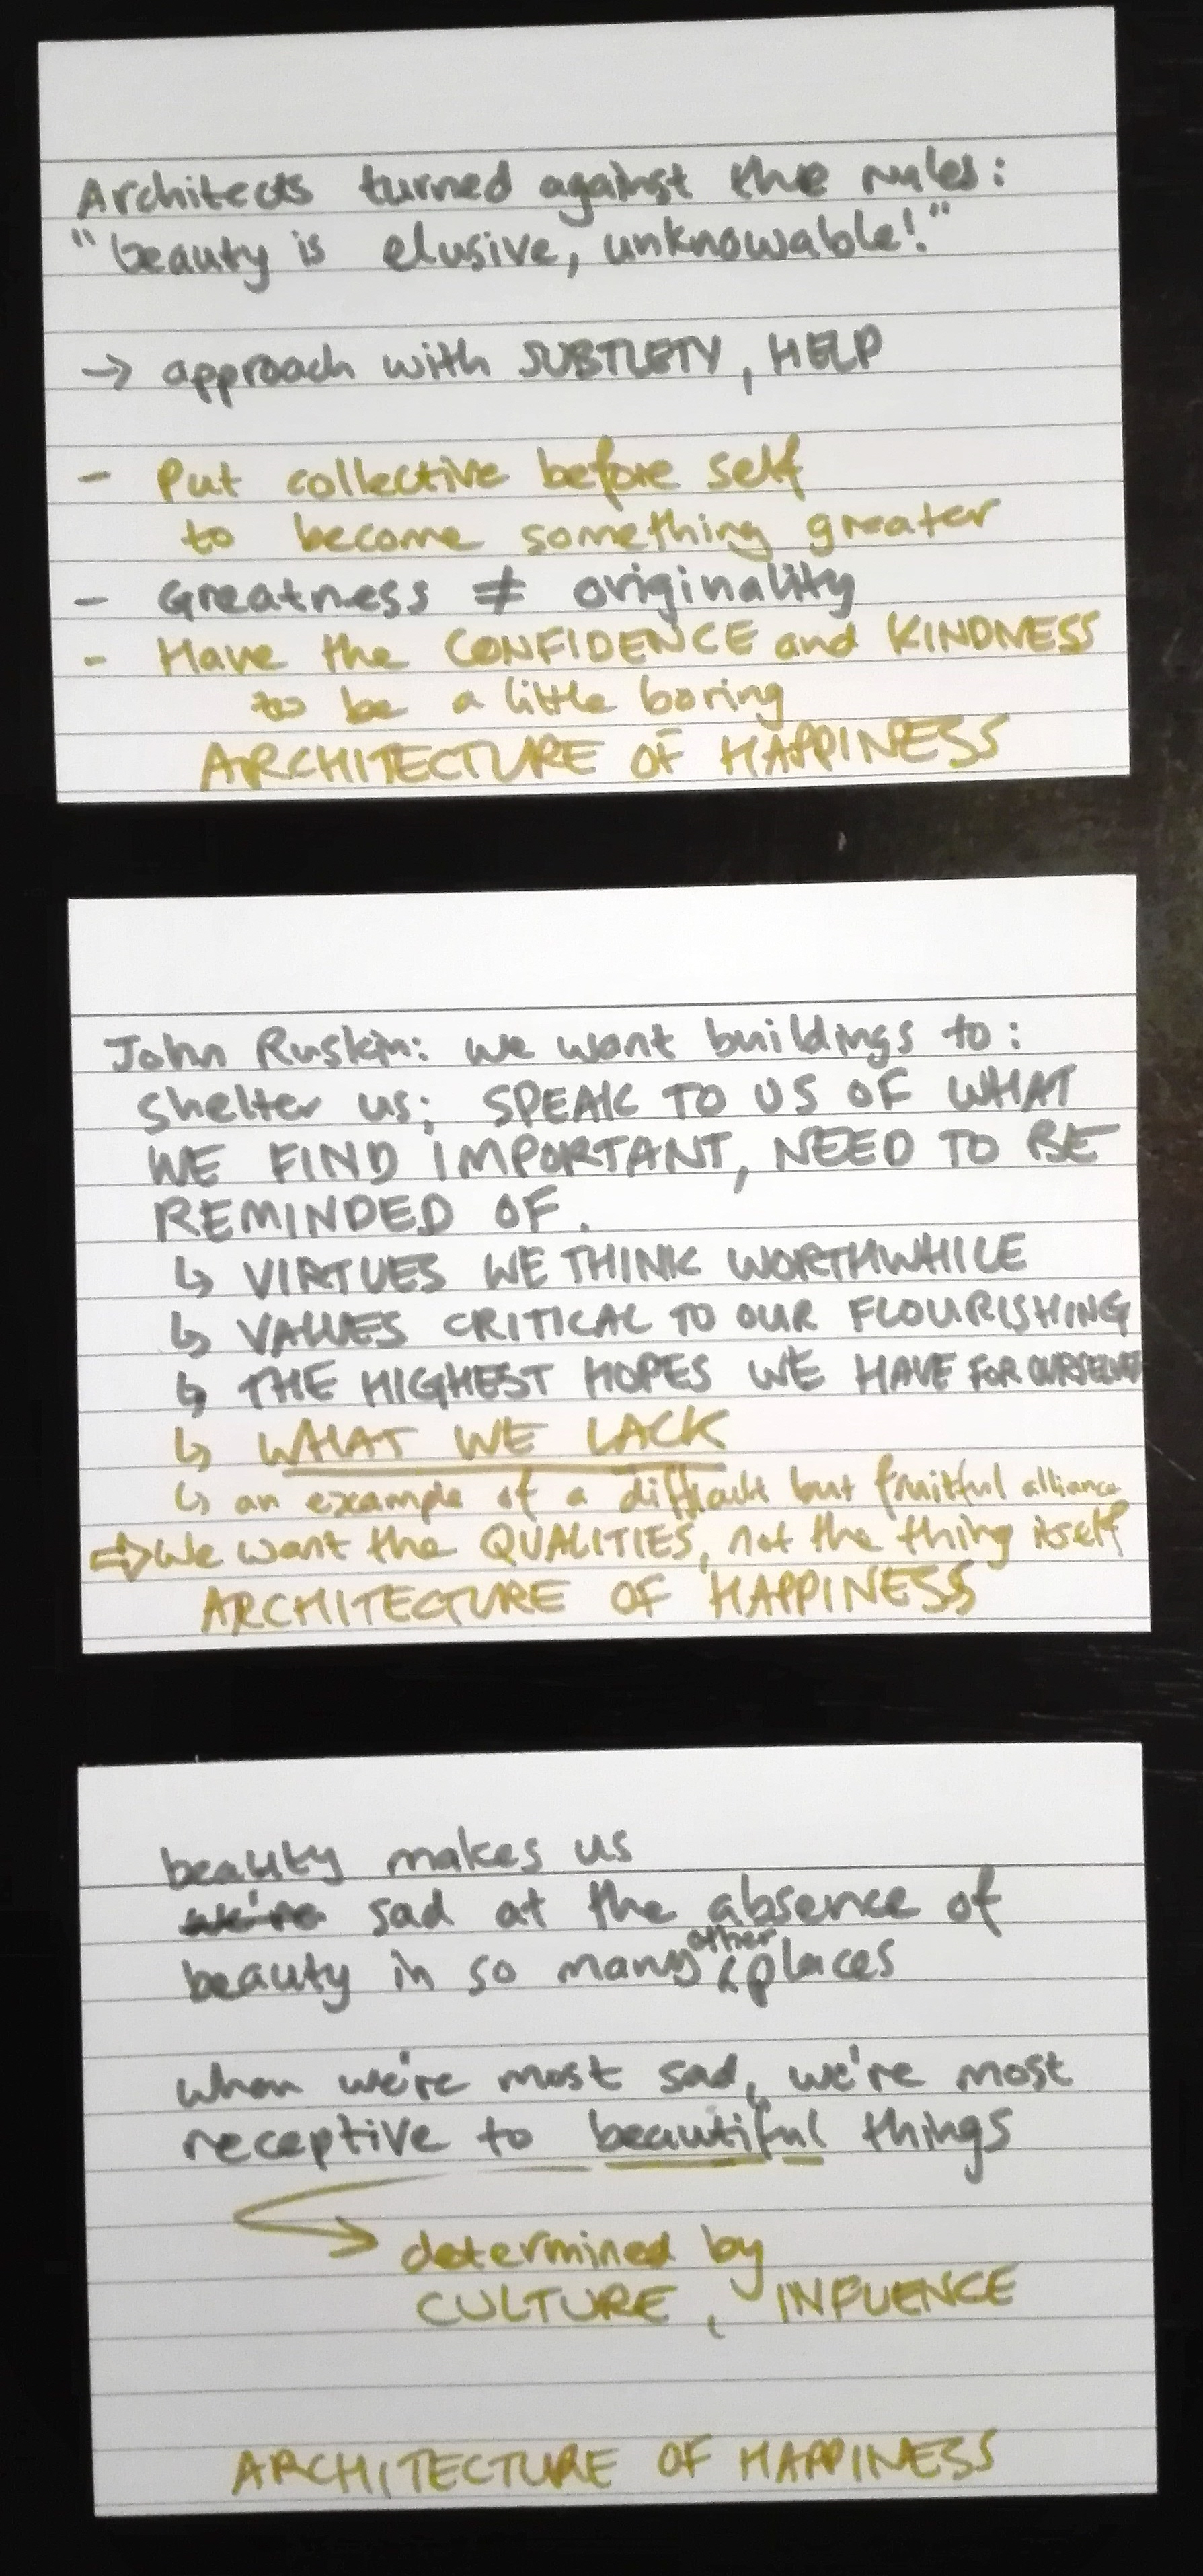 Architects turned against the rules:
"beauty is elusive, unknowable!"
→ approach with SUBTLETY, HELP
- Put collective before self
to become something greater
- Greatness ≠ originality
- Have the CONFIDENCE and KINDNESS
to be a little boring
ARCHITECTURE OF HAPPINESS
John Ruskin: we want buildings to:
shelter us; SPEAK TO US OF WHAT
WE FIND IMPORTANT, NEED TO BE
REMINDED OF.
↳ VIRTUES WE THINK WORTHWHILE
↳ VALUES CRITICAL TO OUR FLOURISHING
↳ THE HIGHEST HOPES WE HAVE FOR OURSELVES
↳ WHAT WE LACK
↳ an example of a difficult but fruitful alliance
⇒ We want the QUALITIES, not the thing itself
ARCHITECTURE OF HAPPINESS
beauty makes us
we're sad at the absence of
beauty in so many other places
when we're most sad, we're most
receptive to beautiful things
determined by
CULTURE, INFLUENCE
ARCHITECTURE OF HAPPINESS